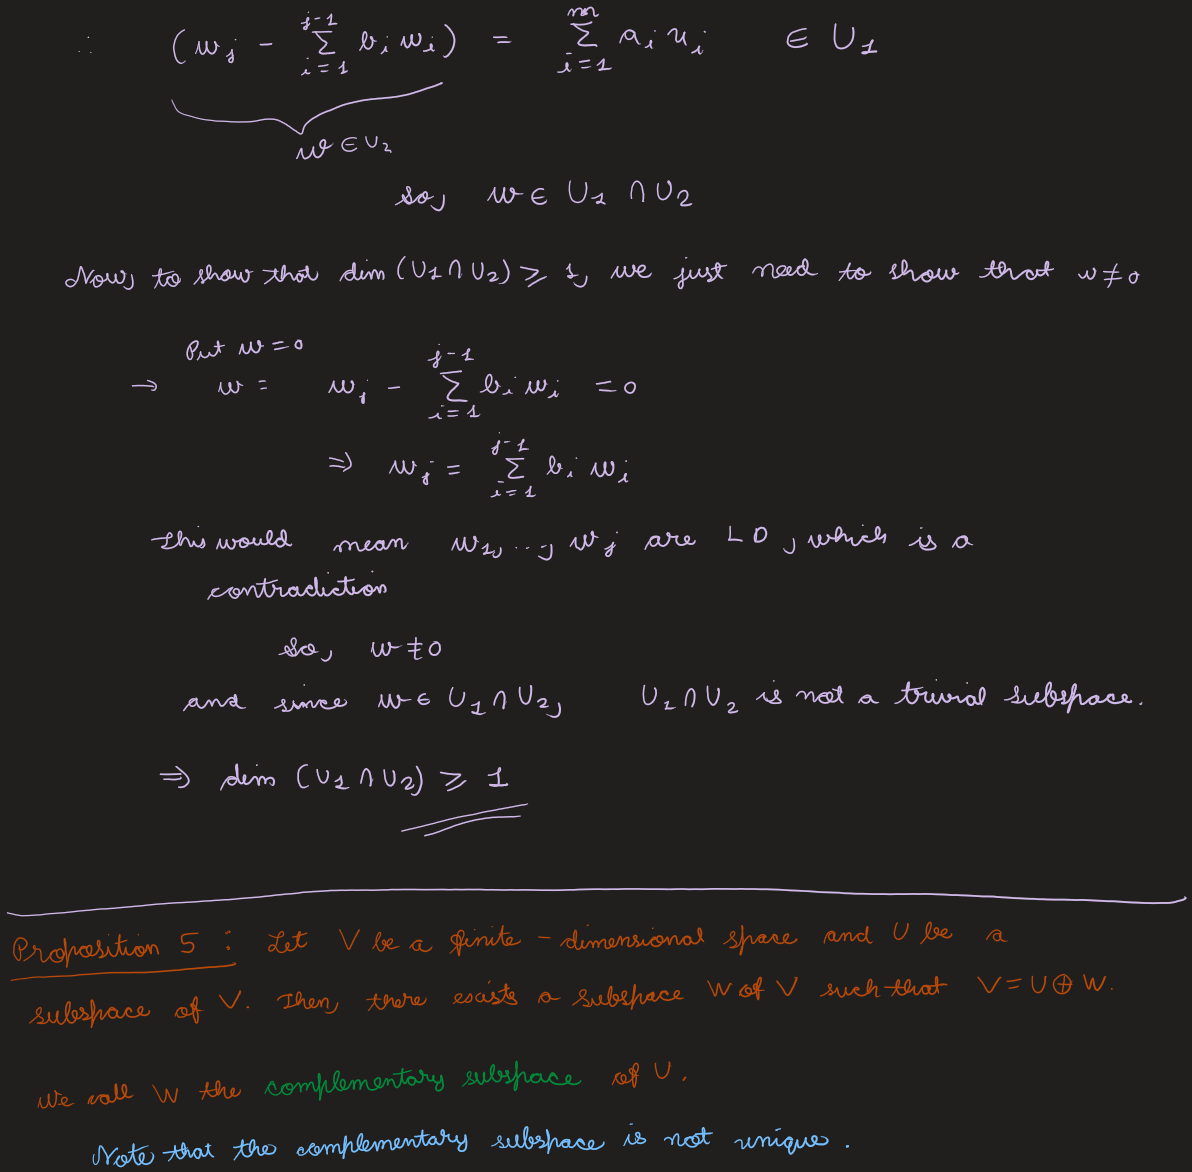 ∴ (w_j - \sum_{i=1}^{j-1} b_i w_i) = \sum_{i=1}^{m} a_i u_i ∈ U_1
w ∈ U_2
so, w ∈ U_1 ∩ U_2
Now, to show that dim (U_1 ∩ U_2) ⩾ 1, we just need to show that w ≠ 0
Put w = 0
→ w = w_j - \sum_{i=1}^{j-1} b_i w_i = 0
⇒ w_j = \sum_{i=1}^{j-1} b_i w_i
This would mean w_1, ..., w_j are LD, which is a
contradiction
So, w ≠ 0
and since w ∈ U_1 ∩ U_2, U_1 ∩ U_2 is not a trivial subspace.
⇒ dim (U_1 ∩ U_2) ⩾ 1
Proposition 5 : Let V be a finite - dimensional space and U be a
subspace of V. Then, there exists a subspace W of V such that V = U ⊕ W.
We call W the complementary subspace of U.
Note that the complementary subspace is not unique.